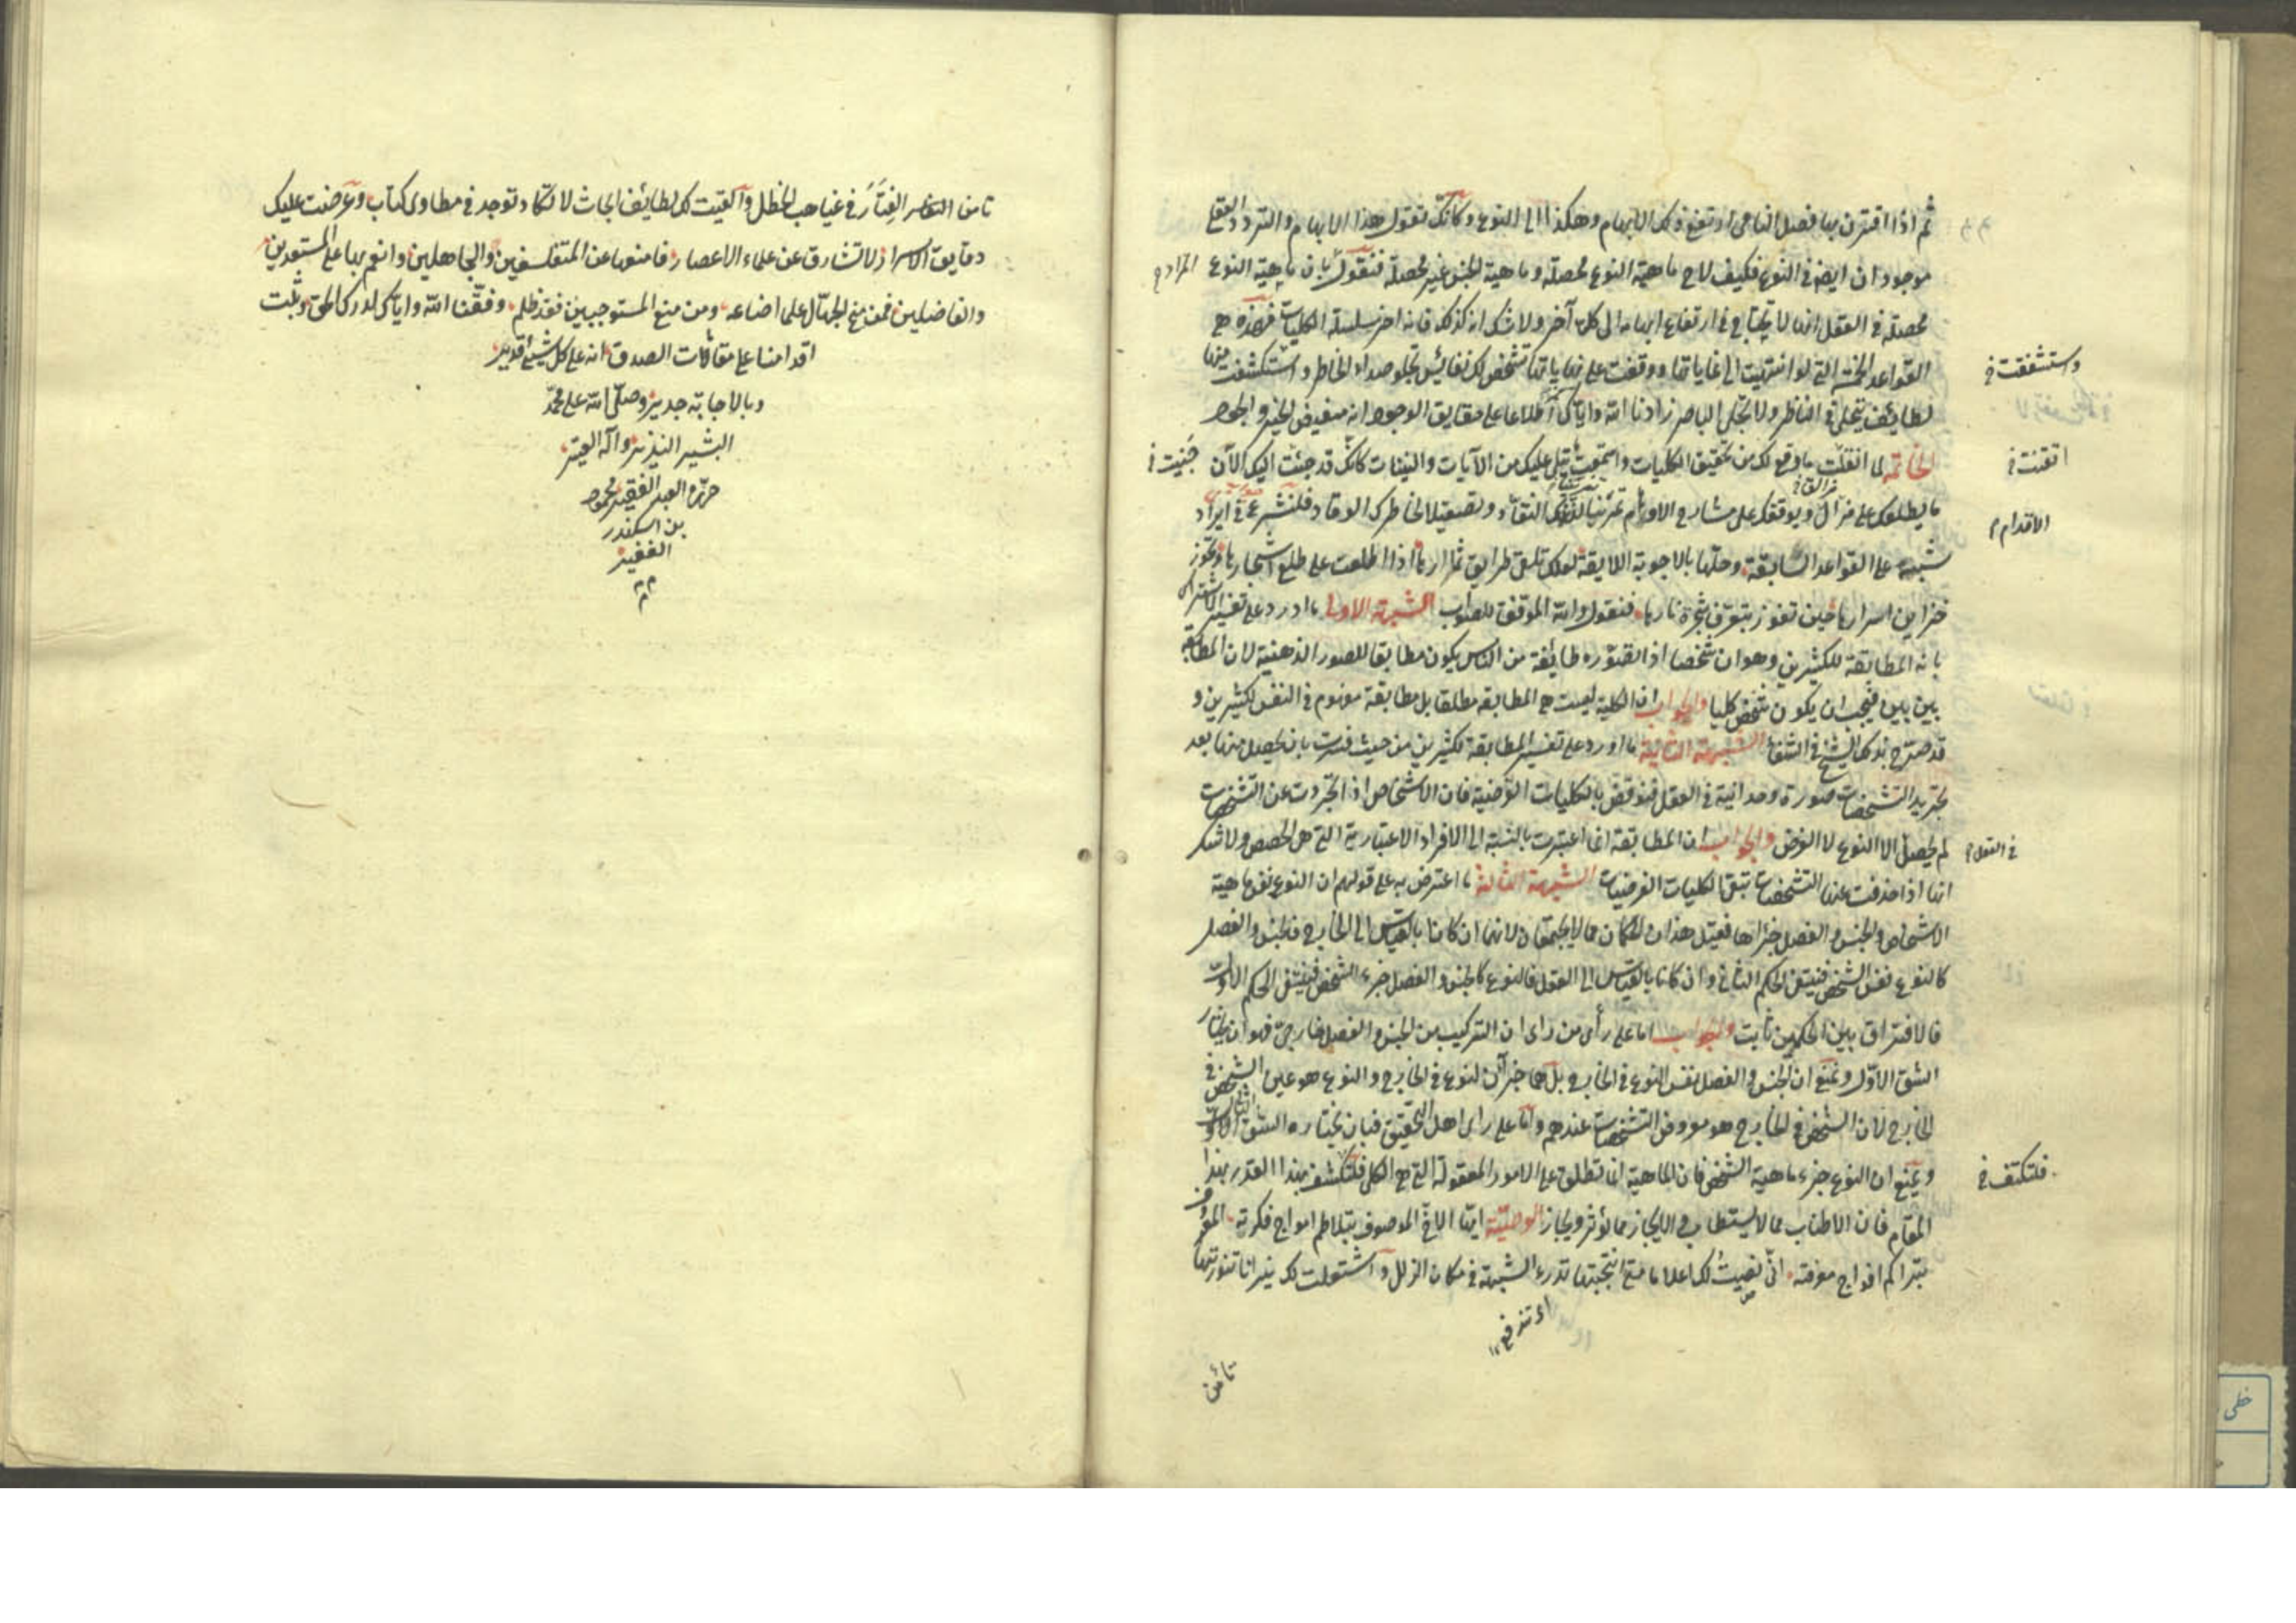 ثم اذا اقترن بها فصل النامى ارتفع ذلك الابهام وهكذا الى النوع وكانك تقول هذا الابهام والتردد العقلى
موجود ان ايضا فى النوع فكيف لاح ماهية النوع محصلة وماهية الجنس غير محصلة فنقول بان ماهية النوع
المراد
محصلة فى العقل انها لا يحتاج فى ارتفاع ابهامه الى كلى آخر ولا شك انه كذلك فانه اخر سلسلة الكليات فهذه هى
القواعد الخمسة التى لو انتهيت الى غاياتها ووقفت على نهاياتها تشخص لك نفائس تجلو صداء الخاطر واستكشفت منها
واستشففت
لطايف يتحلى فى الناظر ولا تجلى الباصر زادنا الله واياك اطلاعا على حقايق الوجود انه مفيض الخير والجود
الخاتمة لما اتقنت ما وقع لك من تحقيق الكليات واستمعت ما تتلى عليك من الآيات والبينات كانك قد جئت اليك الآن
اتقنت
جنيت
ما يطلعك على مزال ويوقفك على مشارع الاوهام تمرينا لفكرك النقاد وتصقيلا لخاطرك الوقاد فلنشرع فى ايراد
الاقدام
شبهة على القواعد السابقة وحلها بالاجوبة اللايقة لعلك تلق طرايق ثمارها اذا اطلعت على طلع اشجارها وتحوز
خزاين اسرارها حين تفوز بتعرف شجرة نارها فنقول والله الموفق للصواب الشبهة الاولى ما اورد على تفسير الاشتراك
بانه المطابقة للكثيرين وهو ان شخصا اذا تصوره طائفة من الناس يكون مطابقا للصور الذهنية لان المطابقة
بين بين فيجب ان يكون شخص كليا والجواب ان الكلية ليست هى المطابقة مطلقا بل مطابقة مفهوم فى النفس لكثيرين و
قد صرح بذلك الشيخ فى الشفاء الشبهة الثانية ما اورد على تفسير المطابقة لكثيرين من حيث فسرت بان يحصل منها بعد
تجريد التشخصات صورة وحدانية فى العقل فنوقض بالكليات العرضية فان الاشخاص اذا تجردت عن التشخصات
لم يحصل الا النوع لا العرض والجواب ان المطابقة انما اعتبرت بالنسبة الى الافراد الاعتبارية التى هى الحصص ولا شك
فى العقل
انها اذا حذفت عنها التشخصات تبقى الكليات العرضيات الشبهة الثالثة ما اعترض به على قولهم ان النوع نفس ماهية
الاشخاص والجنس والفصل جزاها فقيل هذان الحكمان مما لا يجتمعان لانهما ان كانا بالقياس الى الخارج فالجنس والفصل
كالنوع نفس الشخص فينتفى الحكم الثانى وان كانا بالقياس الى العقل فالنوع كالجنس والفصل جزء الشخص فينتفى الحكم الاول
فالافتراق بين الحكمين ثابت والجواب اما على رأى من رأى ان التركيب من الجنس والفصل خارجى فهو ان يختار
الشق الاول ونمنع ان الجنس والفصل نفس النوع فى الخارج بل هما جزآن لنوع فى الخارج والنوع هو عين الشخص فى
الخارج لان الشخص فى الخارج هو معروض التشخصات عندهم واما على راى اهل التحقيق فبان يختاره الشق الثانى
ويمنع ان النوع جزء ماهية الشخص فان الماهية انما تطلق على الامور المعقولة التى هى الكلى فلنكشف بهذا القدر بهذا
فلنكتف
المقام فان الاطناب مما لا يستطاب والايجاز مما يؤثر ويجاز الوصية ايها الاخ الموصوف بتلاطم امواج فكرته المعروف
بتراكم افواج معرفته انى نصبت لك اعلاما متى انتحيتها تدرء الشبهة فى مكان الزلل واشتعلت لك نيرانا تنورتها
اى تندفع
تأمن
تأمن العثار فى غياهب الخطل والقيت لك لطائف ابحاث لا تكاد توجد فى مطاوى كتاب وعرضت عليك
دقايق اسرار لا تشارق عن علماء الاعصار فامنعها عن المتفلسفين والجاهلين وانعم بها على المستعدين
والفاضلين فمن منح الجهال علما اضاعه ومن منع المستوجبين فقد ظلم وفقنا الله واياك لدرك الحق وثبت
اقدامنا على مقامات الصدق انه على كل شىء قدير
وبالاجابة جدير وصلى الله على محمد
البشير النذير وآله العتر
حرره العبد الفقير محمود
بن اسكندر
الفقير